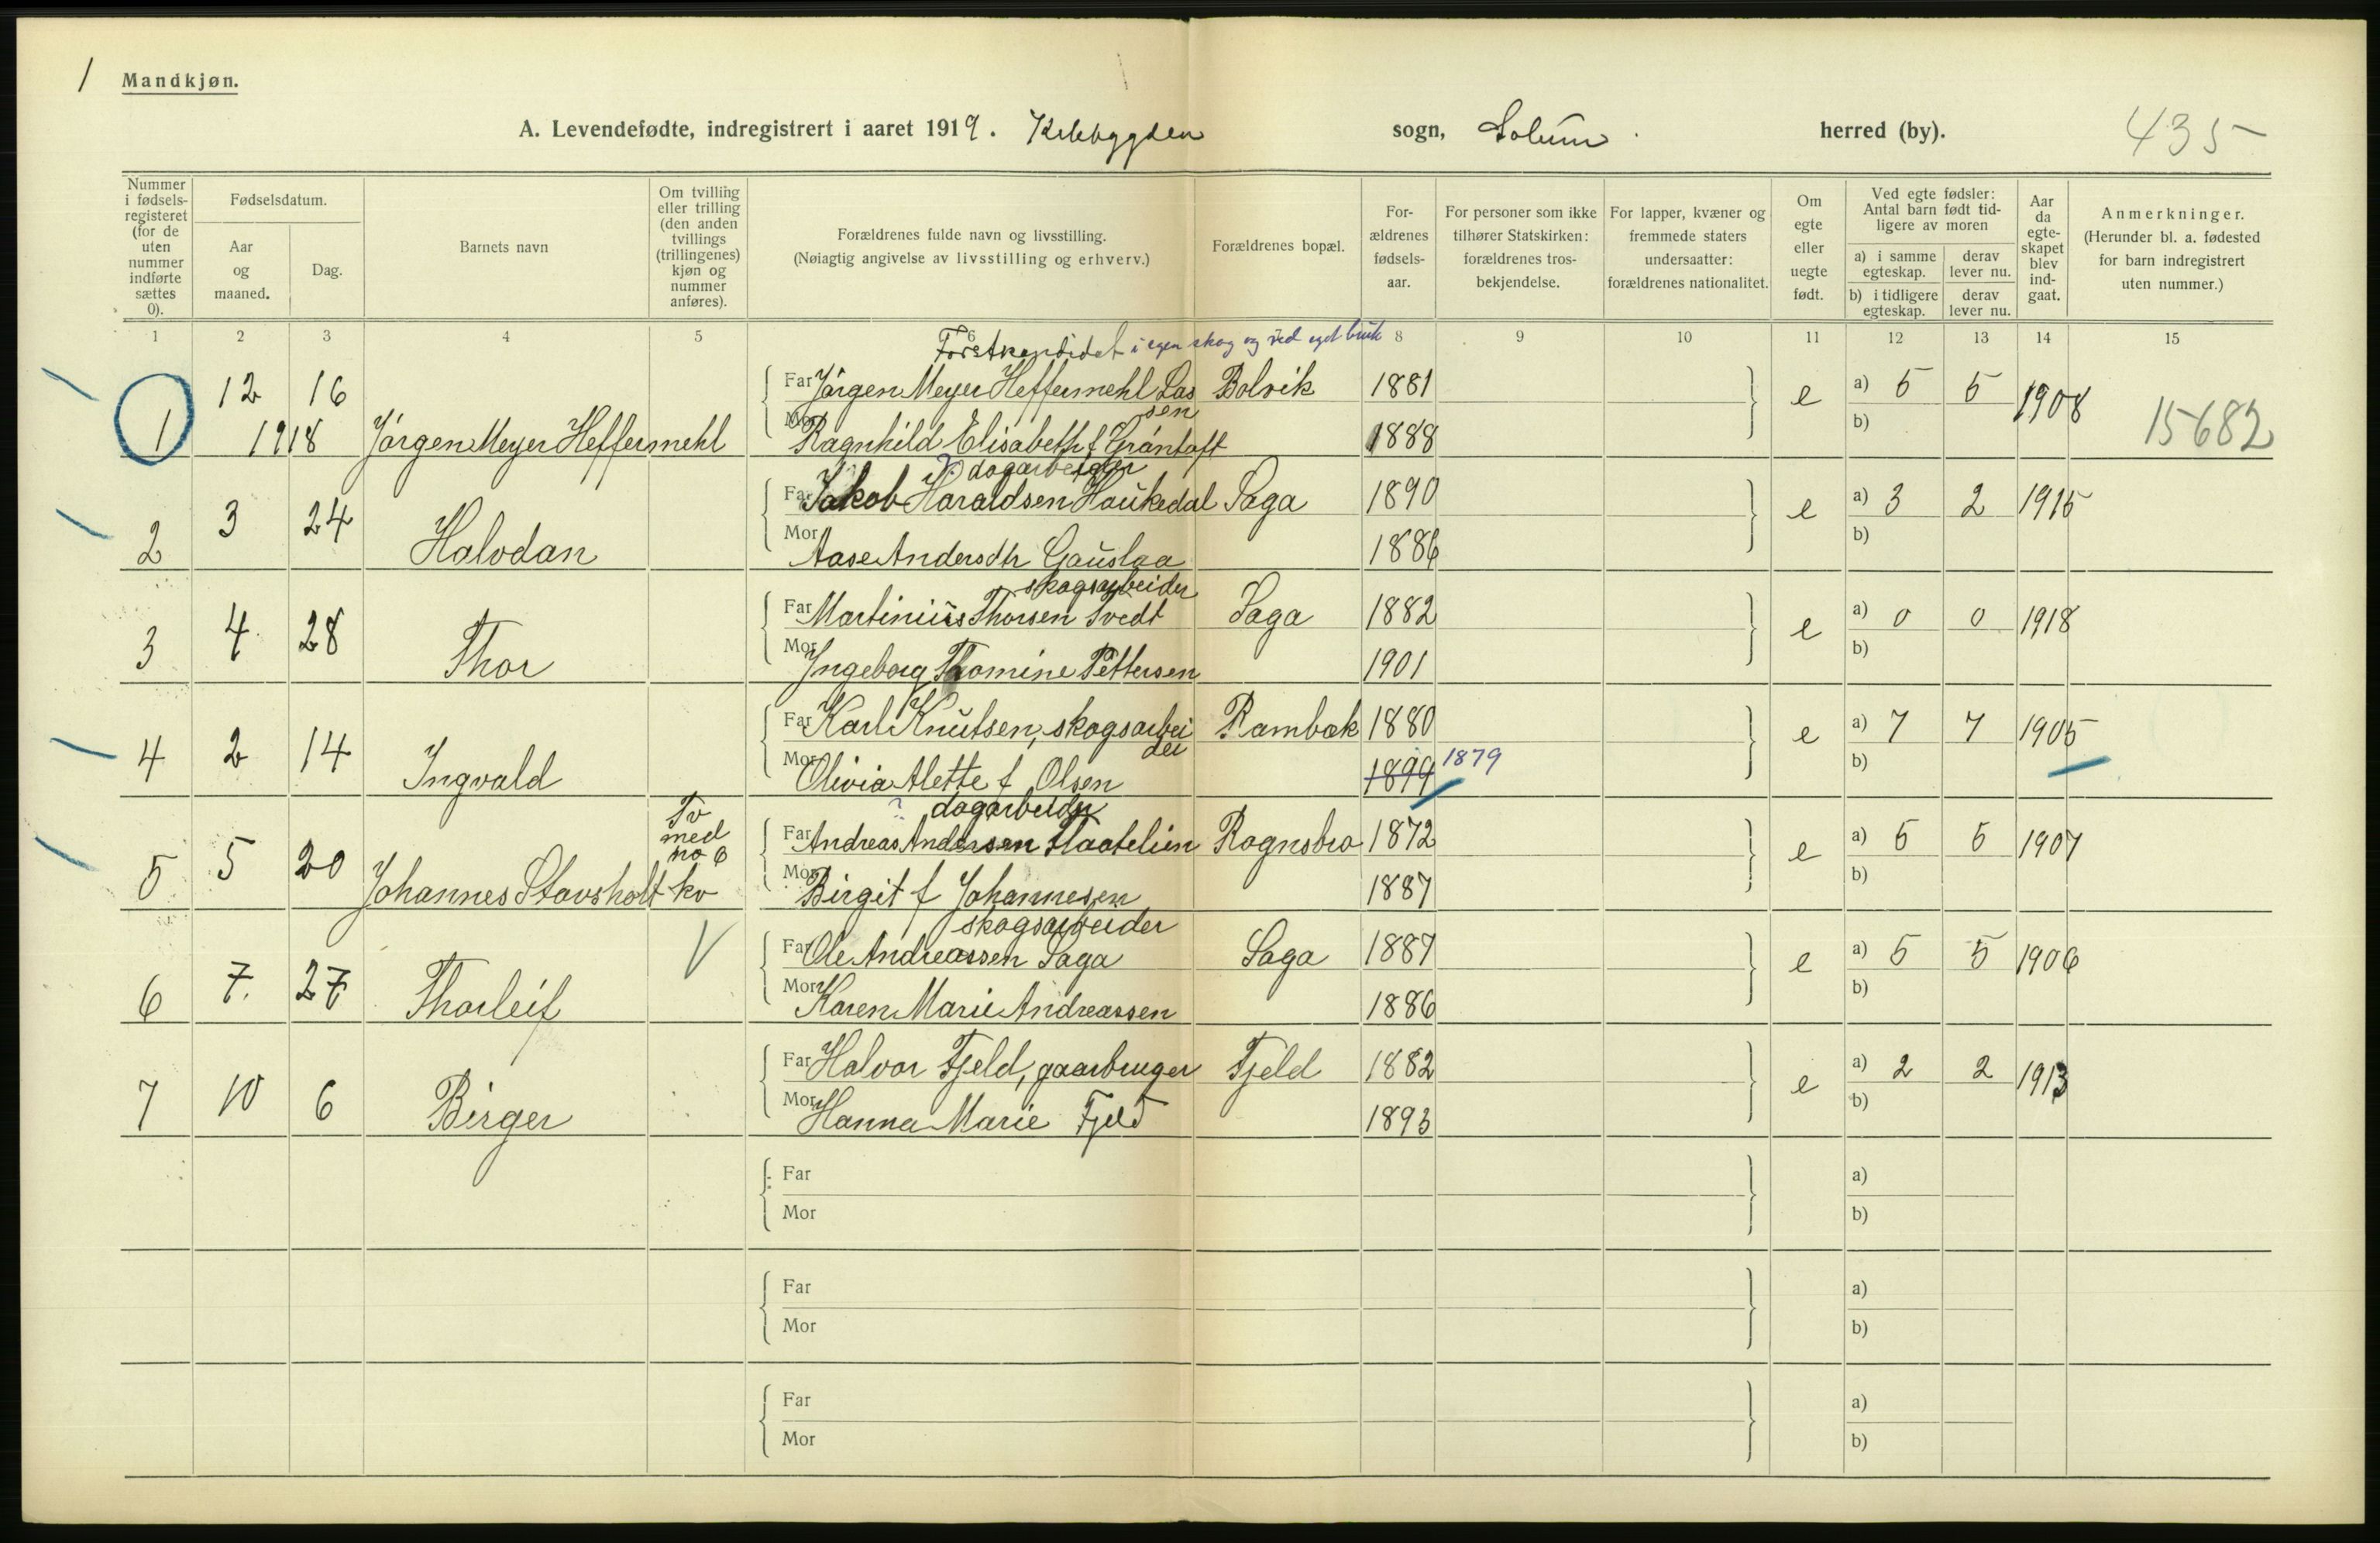 1
Mandkjøn.
A. Levendefødte, indregistrert i aaret 1919. Kilebygden sogn, Solum herred (by). 435
Nummer i fødselsregisteret (for de uten nummer indførte sættes 0).
Fødselsdatum.
Aar og maaned.
Dag.
Barnets navn
Om tvilling eller trilling (den anden tvillings (trillingenes) kjøn og nummer anføres).
Forældrenes fulde navn og livsstilling.
(Nøiagtig angivelse av livsstilling og erhverv.)
Forældrenes bopæl.
Forældrenes fødselsaar.
For personer som ikke tilhører Statskirken: forældrenes trosbekjendelse.
For lapper, kvæner og fremmede staters undersaatter: forældrenes nationalitet.
Om egte eller uegte født.
Ved egte fødsler: Antal barn født tidligere av moren
a) i samme egteskap. derav lever nu.
b) i tidligere egteskap. derav lever nu.
Aar da egteskapet blev indgaat.
Anmerkninger.
(Herunder bl. a. fødested for barn indregistrert uten nummer.)
1 2 3 4 5 6 8 9 10 11 12 13 14 15
Forstkandidat i egen skog og ved eget bruk
12 16 Far Jørgen Meyer Heffermehl Lassen Bolvik 1881 e a) 5 5 1908
1 1918 Jørgen Meyer Heffermehl Mor Ragnhild Elisabeth f Grántoft 1888 b) 15682
? dagarbeider
3 24 Far Jakob Haraldsen Haukedal Saga 1890 e a) 3 2 1915
2 Halvdan Mor Aase Andersdtr Gauslaa 1886 b)
skogsarbeider
4 28 Far Martinius Thorsen Tvedt Saga 1882 e a) 0 0 1918
3 Thor Mor Ingeborg Thomine Pettersen 1901 b)
2 14 Far Karl Knutsen, skogsarbeider Rambæk 1880 e a) 7 7 1905
4 Ingvald Mor Olivia Alette f Olsen 1899 1879 b)
Tv med no 6 kv
? dagarbeider
5 20 Far Andreas Andersen Flaatelien Rognsbro 1872 e a) 5 5 1907
5 Johannes Stavsholt Mor Birgit f Johannesen 1887 b)
skogsarbeider
7. 27 Far Ole Andreassen Saga Saga 1887 e a) 5 5 1906
6 Thorleif Mor Karen Marie Andreassen 1886 b)
10 6 Far Halvor Fjeld, gaarbruger Fjeld 1882 e a) 2 2 1913
7 Birger Mor Hanna Marie Fjeld 1893 b)
Far a)
Mor b)
Far a)
Mor b)
Far a)
Mor b)